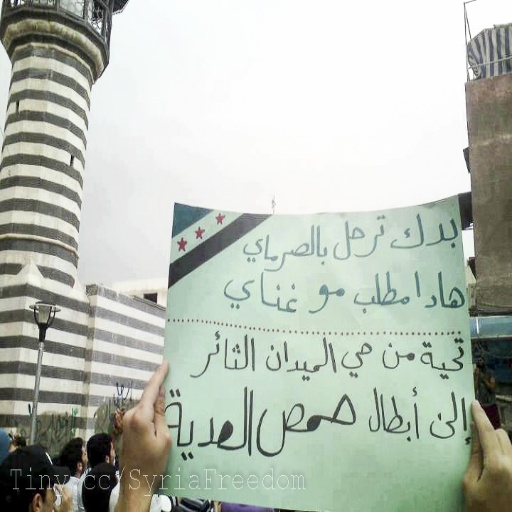 بدك ترحل بالصرماي
هادا مطلب مو غناي
تحية من حي الميدان الثائر
إلى أبطال حمص العدية
Tiny.cc/SyriaFreedom